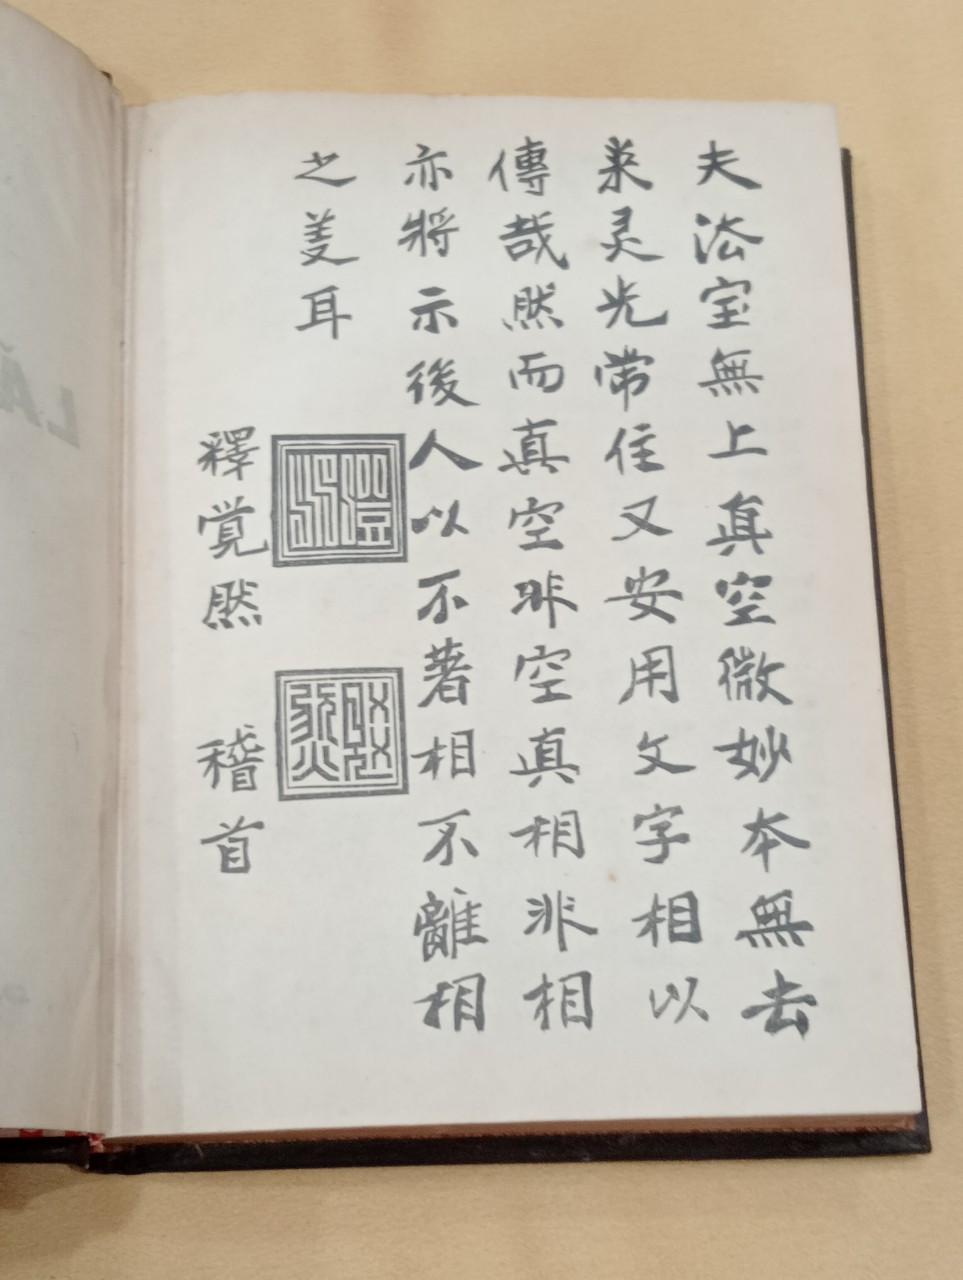 夫法宝無上真空微妙本無去
来灵光常住又安用文字相以
傳哉然而真空非空真相非相
亦將示後人以不著相不離相
之美耳
釋覚然 稽首